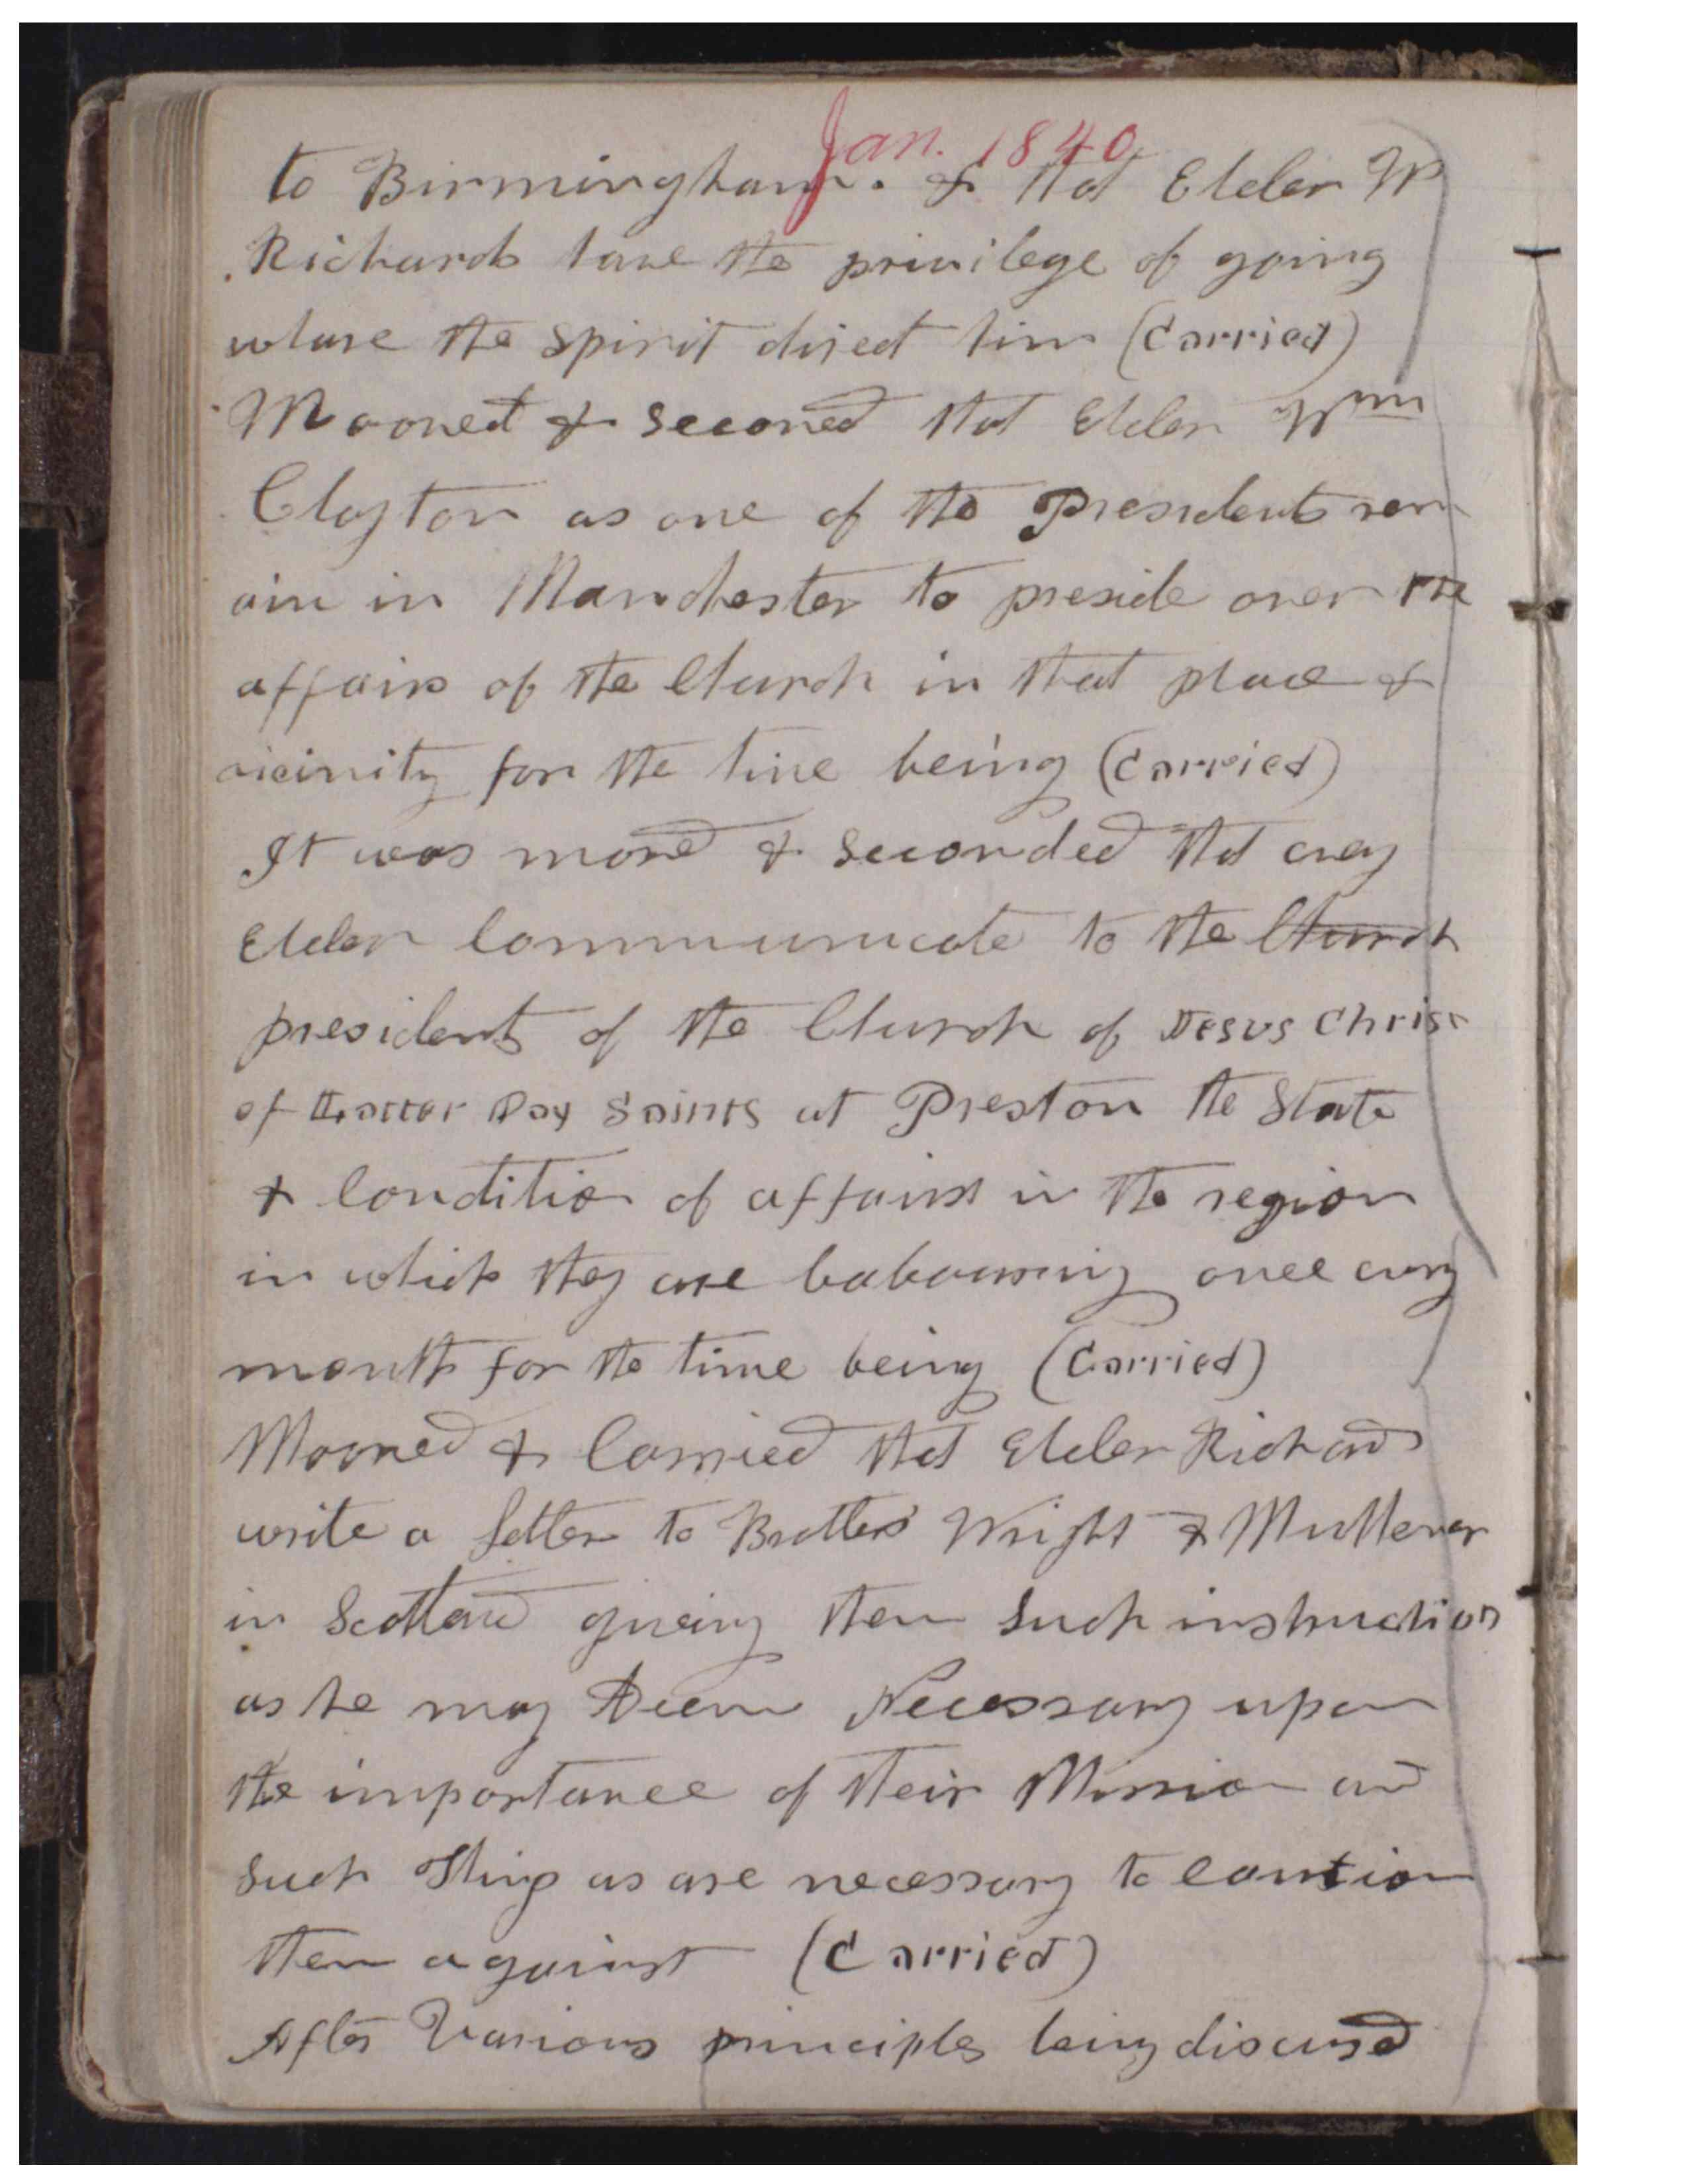 Jan. 1840
to Birmingham. & that Elder W
Richards have the privilege of going
whare the spirit direct him (Carried)
Mooved & seconed that Elder Wm
Clayton as one of the Presidents rem
ain in Manchester to preside over the
affairs of the Church in that place &
vicinity for the time being (Carried)
It was moved & seconded that evey
Elder Communicate to the Church
presidents of the Church of Jesus Christ
of Latter Day Saints at Preston the State
& Condition of affairs in the region
in which they are labouring once evry
month for the time being (Carried)
Mooved & Carried that Elder Richards
write a letter to Brothers Wright & Mulliner
in Scotland giveing them such instruction
as he may Deem Necessary upon
the importance of their Mission and
such Things as are necessary to caution
them against (Carried)
After Various principles being discused